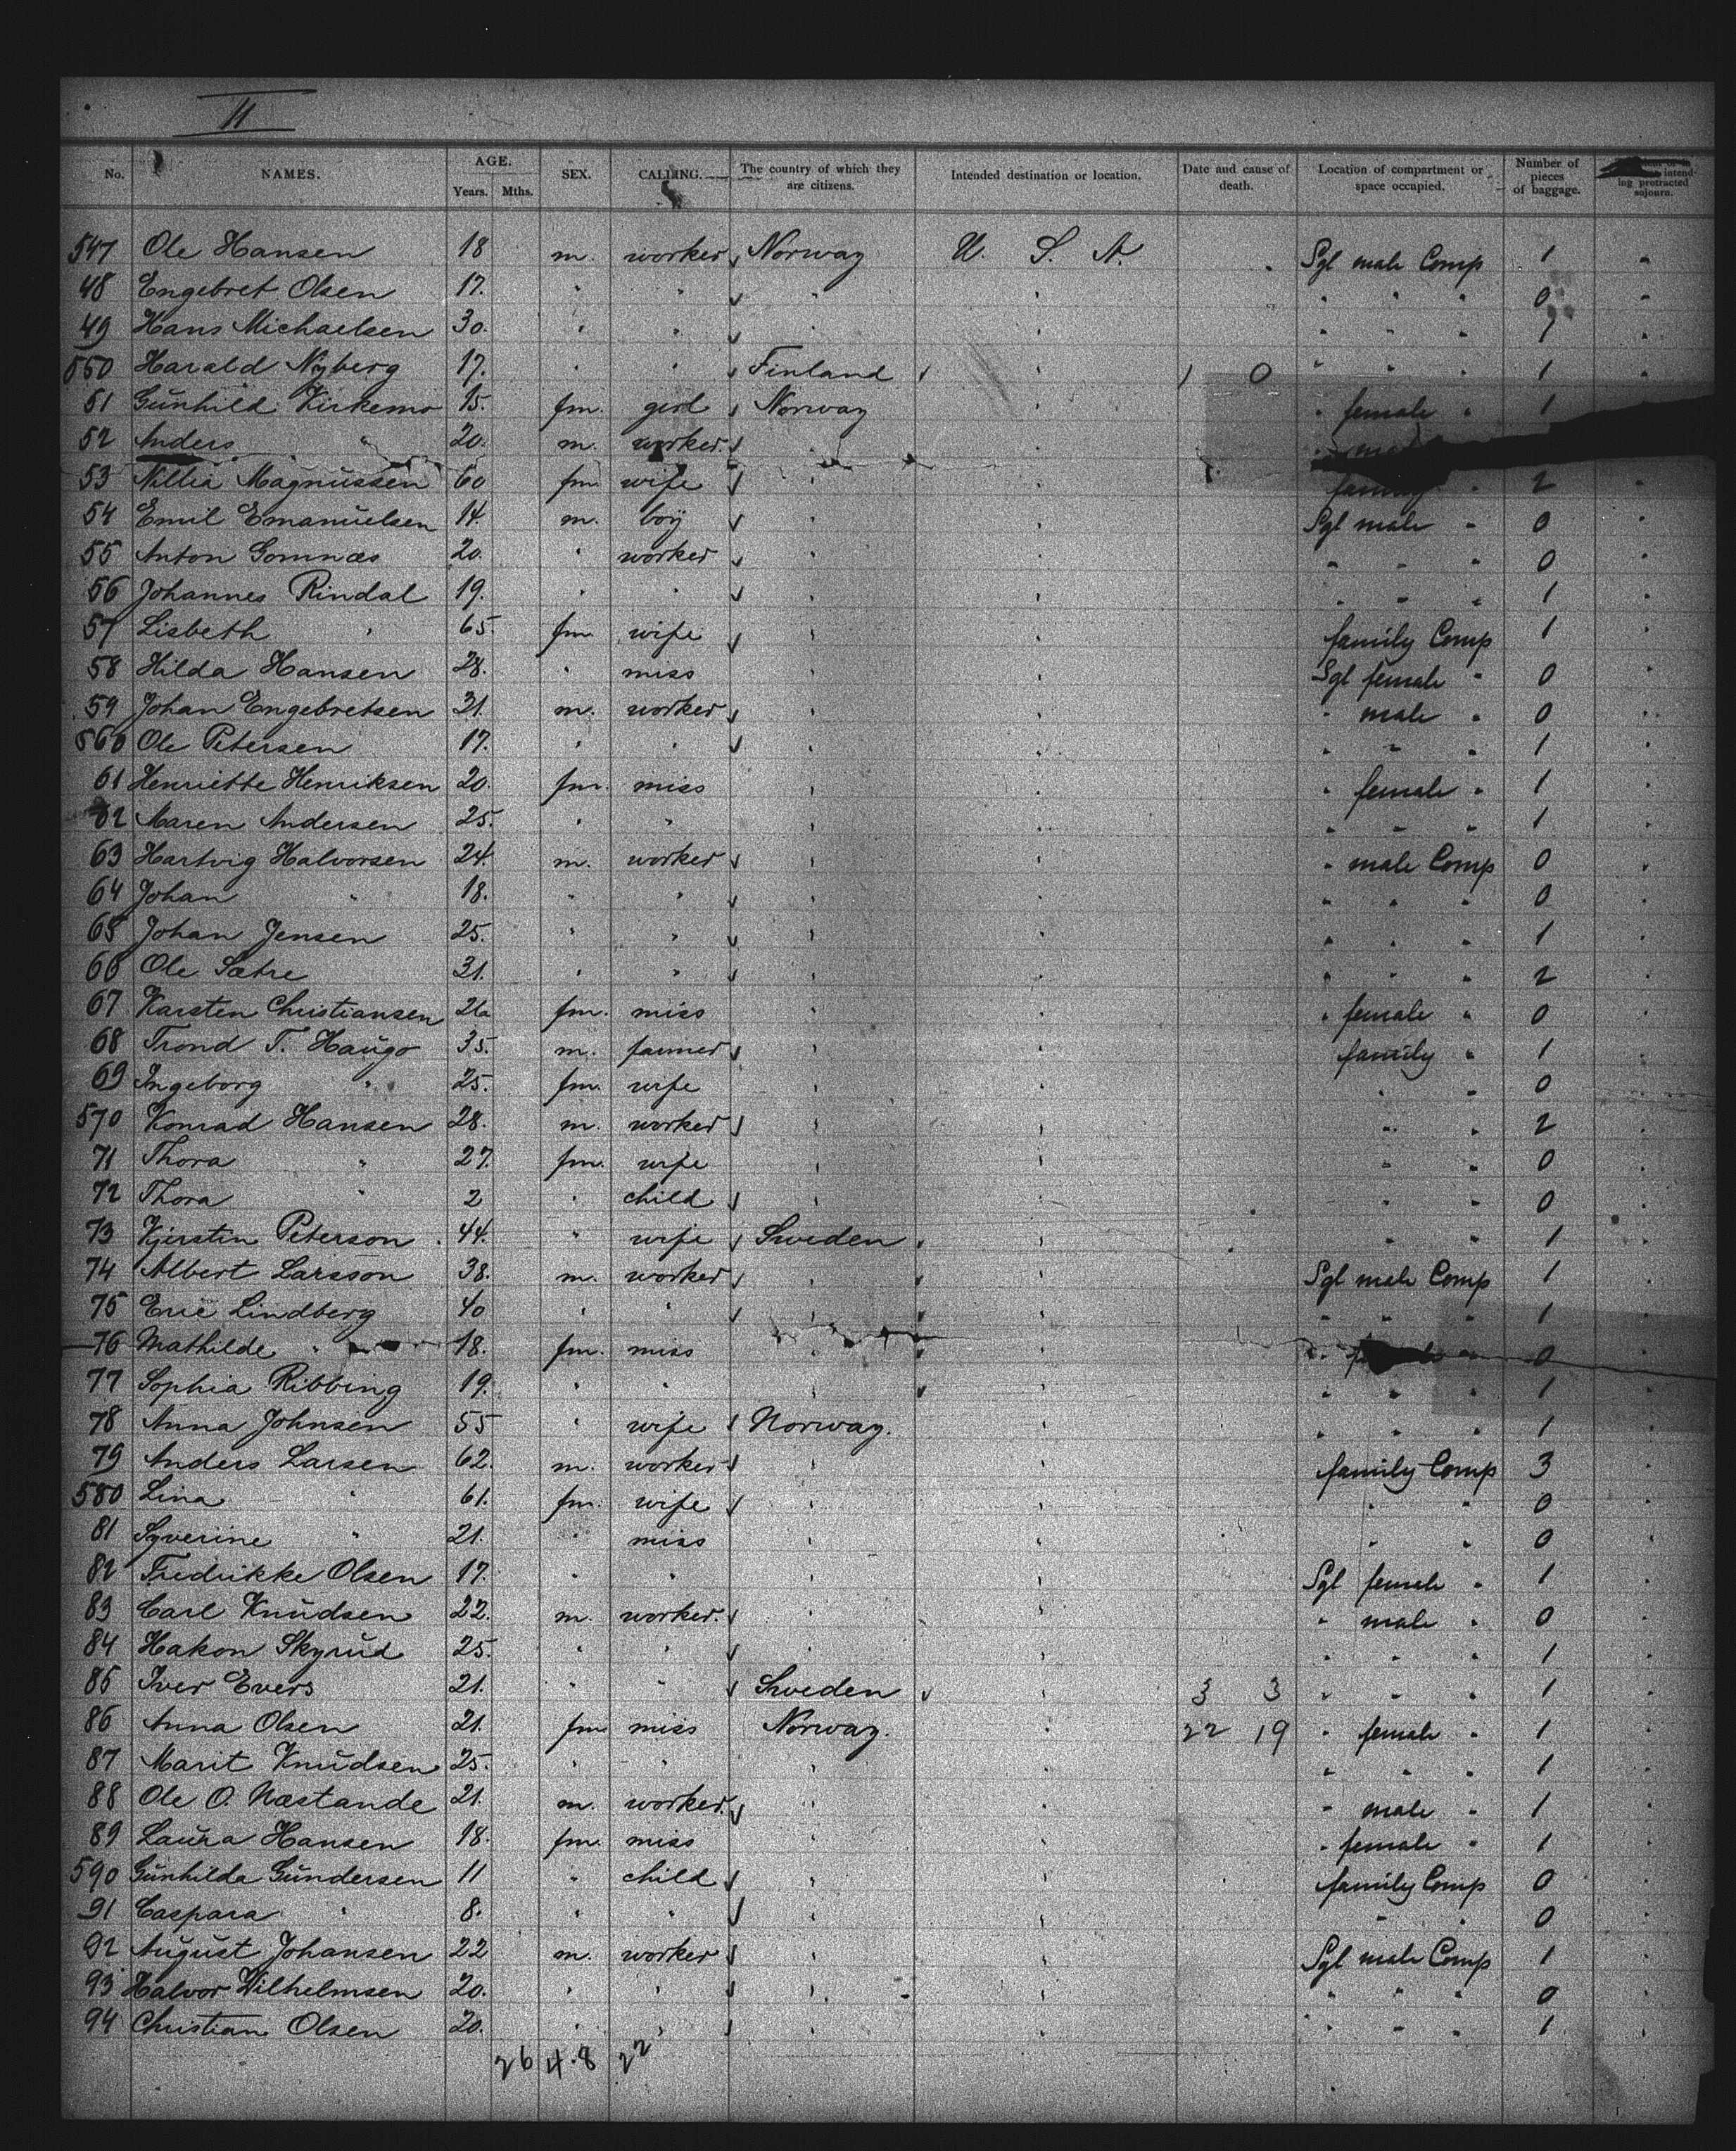 11
No. NAMES. AGE. Years. Mths. SEX. CALLING. The country of which they are citizens. Intended destination or location. Date and cause of death. Location of compartment or space occupied. Number of pieces of baggage. intending protracted sojourn.
547 Ole Hansen 18 m. worker Norway U. S. A. Sgl male Comp 1 "
48 Engebret Olsen 17. " " " " " " " 0 "
49 Hans Michaelsen 30. " " " " " " " 1 "
550 Harald Nyberg 17. " " Finland " 1 0 " " " 1 "
51 Gunhild Kirkemo 15. fm. girl Norway " " female " 1
52 Anders " 20. m. worker. " " "
53 Magnussen 60 fm wife " " family " 2 "
54 Emil Emanuelsen 14. m. boy " " Sgl male " 0 "
55 Anton Gomnæs 20. " worker " " " " " 0 "
56 Johannes Rindal 19. " " " " " " " 1 "
57 Lisbeth " 65. fm wife " " family Comp 1 "
58 Hilda Hansen 28. " miss " " Sgl female " 0 "
59 Johan Engebretsen 31. m. worker " " " male " 0 "
560 Ole Petersen 17. " " " " " " " 1 "
61 Henriette Henriksen 20. fm. miss " " " female " 1 "
62 Maren Andersen 25. " " " " " " " 1 "
63 Hartvig Halvorsen 24. m. worker " " " male Comp 0 "
64 Johan " 18. " " " " " " " 0 "
65 Johan Jensen 25. " " " " " " " 1 "
66 Ole Sætre 31. " " " " " " " 2 "
67 Karsten Christiansen 26 fm. miss " " " female " 0 "
68 Trond T. Haugo 35. m. farmer " " family " 1 "
69 Ingeborg " 25. fm. wife " " " " 0 "
570 Konrad Hansen 28. m. worker " " " " 2 "
71 Thora " 27. fm. wife " " " " 0 "
72 Thora " 2 " child " " " " 0 "
73 Kjerstin Peterson 44. " wife Sweden " " " 1 "
74 Albert Larsson 38. m. worker " " Sgl male Comp 1 "
75 Eric Lindberg 40 " " " " " " " 1 "
76 Mathilde " 18. fm. miss " " " " 0 "
77 Sophia Ribbing 19. " " " " " " " 1 "
78 Anna Johnsen 55 " wife Norway. " " " " 1 "
79 Anders Larsen 62. m. worker " " family Comp 3 "
580 Lina " 61. fm. wife " " " " 0 "
81 Syverine " 21. " miss " " " " 0 "
82 Fredrikke Olsen 17. " " " " Sgl female " 1 "
83 Carl Knudsen 22. m. worker. " " " male " 0 "
84 Hakon Skyrud 25. " " " " " " " 1 "
85 Iver Evers 21. " " Sweden " 3 3 " " " 1 "
86 Anna Olsen 21. fm miss Norway. " 22 19 " female " 1 "
87 Marit Knudsen 25. " " " " " " " 1 "
88 Ole O. Næstande 21. m. worker. " " " male " 1 "
89 Laura Hansen 18. fm. miss " " " female " 1 "
590 Gunhilda Gundersen 11 " child " " family Comp 0 "
91 Caspara " 8. " " " " " " 0 "
92 August Johansen 22 m. worker " " Sgl male Comp 1 "
93 Halvor Wilhelmsen 20. " " " " " " " 0 "
94 Christian Olsen 20. " " " " " " " 1 "
26 4.8 22